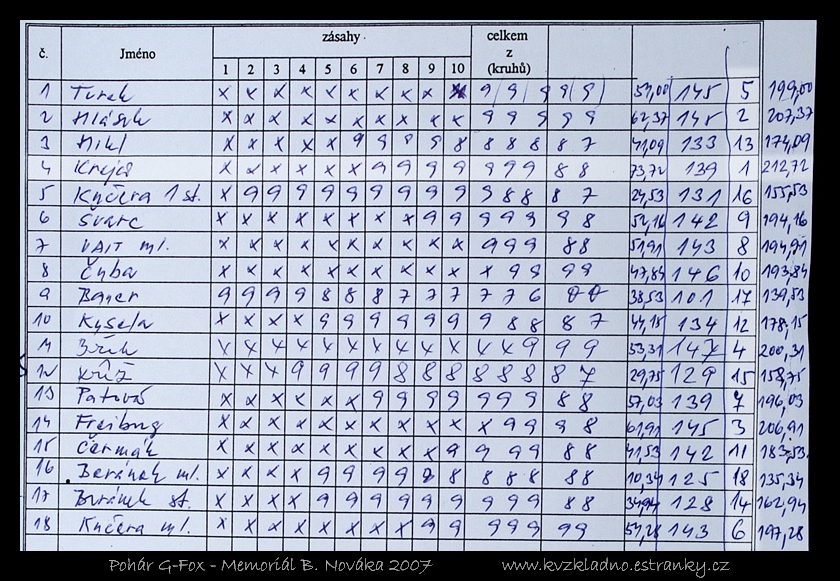 č. Jméno zásahy celkem z (kruhů)
1 2 3 4 5 6 7 8 9 10
1 Turek x x x x x x x x x x 9 9 9 9 9 54,00 145 5 199,00
2 Hlásek x x x x x x x x x x 9 9 9 9 9 62,37 145 2 207,37
3 Hikl x x x x x 9 9 9 9 8 8 8 8 8 7 41,09 133 13 174,09
4 Krejčí x x x x x x 9 9 9 9 9 9 9 8 8 73,72 139 1 212,72
5 Kučera 1 st. x 9 9 9 9 9 9 9 9 9 9 8 8 8 7 24,53 131 16 155,53
6 Švarc x x x x x x x x 9 9 9 9 9 9 8 52,16 142 9 194,16
7 VAIT ml. x x x x x x x x x x 9 9 9 8 8 51,91 143 8 194,91
8 Čuba x x x x x x x x x x x 9 9 9 9 47,84 146 10 193,84
9 Bauer 9 9 9 9 8 8 8 7 7 7 7 7 6 0 0 38,53 101 17 139,53
10 Kysela x x x x 9 9 9 9 9 9 9 8 8 8 7 44,15 134 12 178,15
11 x x x x x x x x x x x x 9 9 9 53,31 147 4 200,31
12 Kříž x x x 9 9 9 9 8 8 8 8 8 8 8 7 29,75 129 15 158,75
13 x x x x x x 9 9 9 9 9 9 9 8 8 57,03 139 7 196,03
14 Freiburg x x x x x x x x x x x 9 9 9 8 61,91 145 3 206,91
15 Čermák x x x x x x x x x 9 9 9 9 8 8 41,53 142 11 183,53
16 Beránek ml. x x x x 9 9 9 9 9 8 8 8 8 8 8 10,34 125 18 135,34
17 Beránek st. x x x x 9 9 9 9 9 9 9 9 9 8 8 34,94 128 14 162,94
18 Kučera ml. x x x x x x x x 9 9 9 9 9 9 9 54,28 143 6 197,28
Pohár G-Fox - Memoriál B. Nováka 2007 www.kvzkladno.estranky.cz